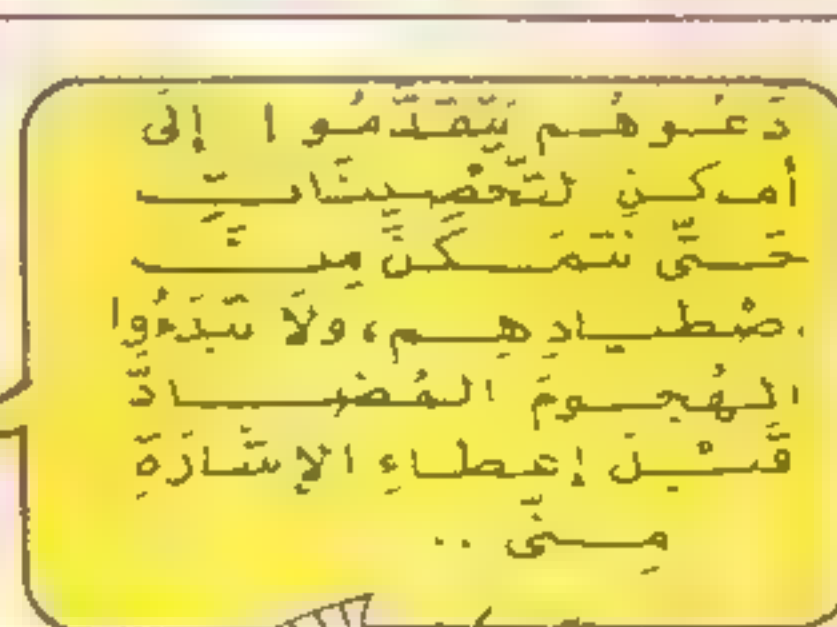 دَعُوهُم يَتَقَدَّمُوا إِلَى
أَمَاكِنِ التَّحْصِينَاتِ
حَتَّى نَتَمَكَّنَ مِن
اصْطِيَادِهِم، ولَا تَبْدَءُوا
الهُجومَ المُضَادَّ
قَبْلَ إعطَاءِ الإشَارَةِ
مِنِّى ..